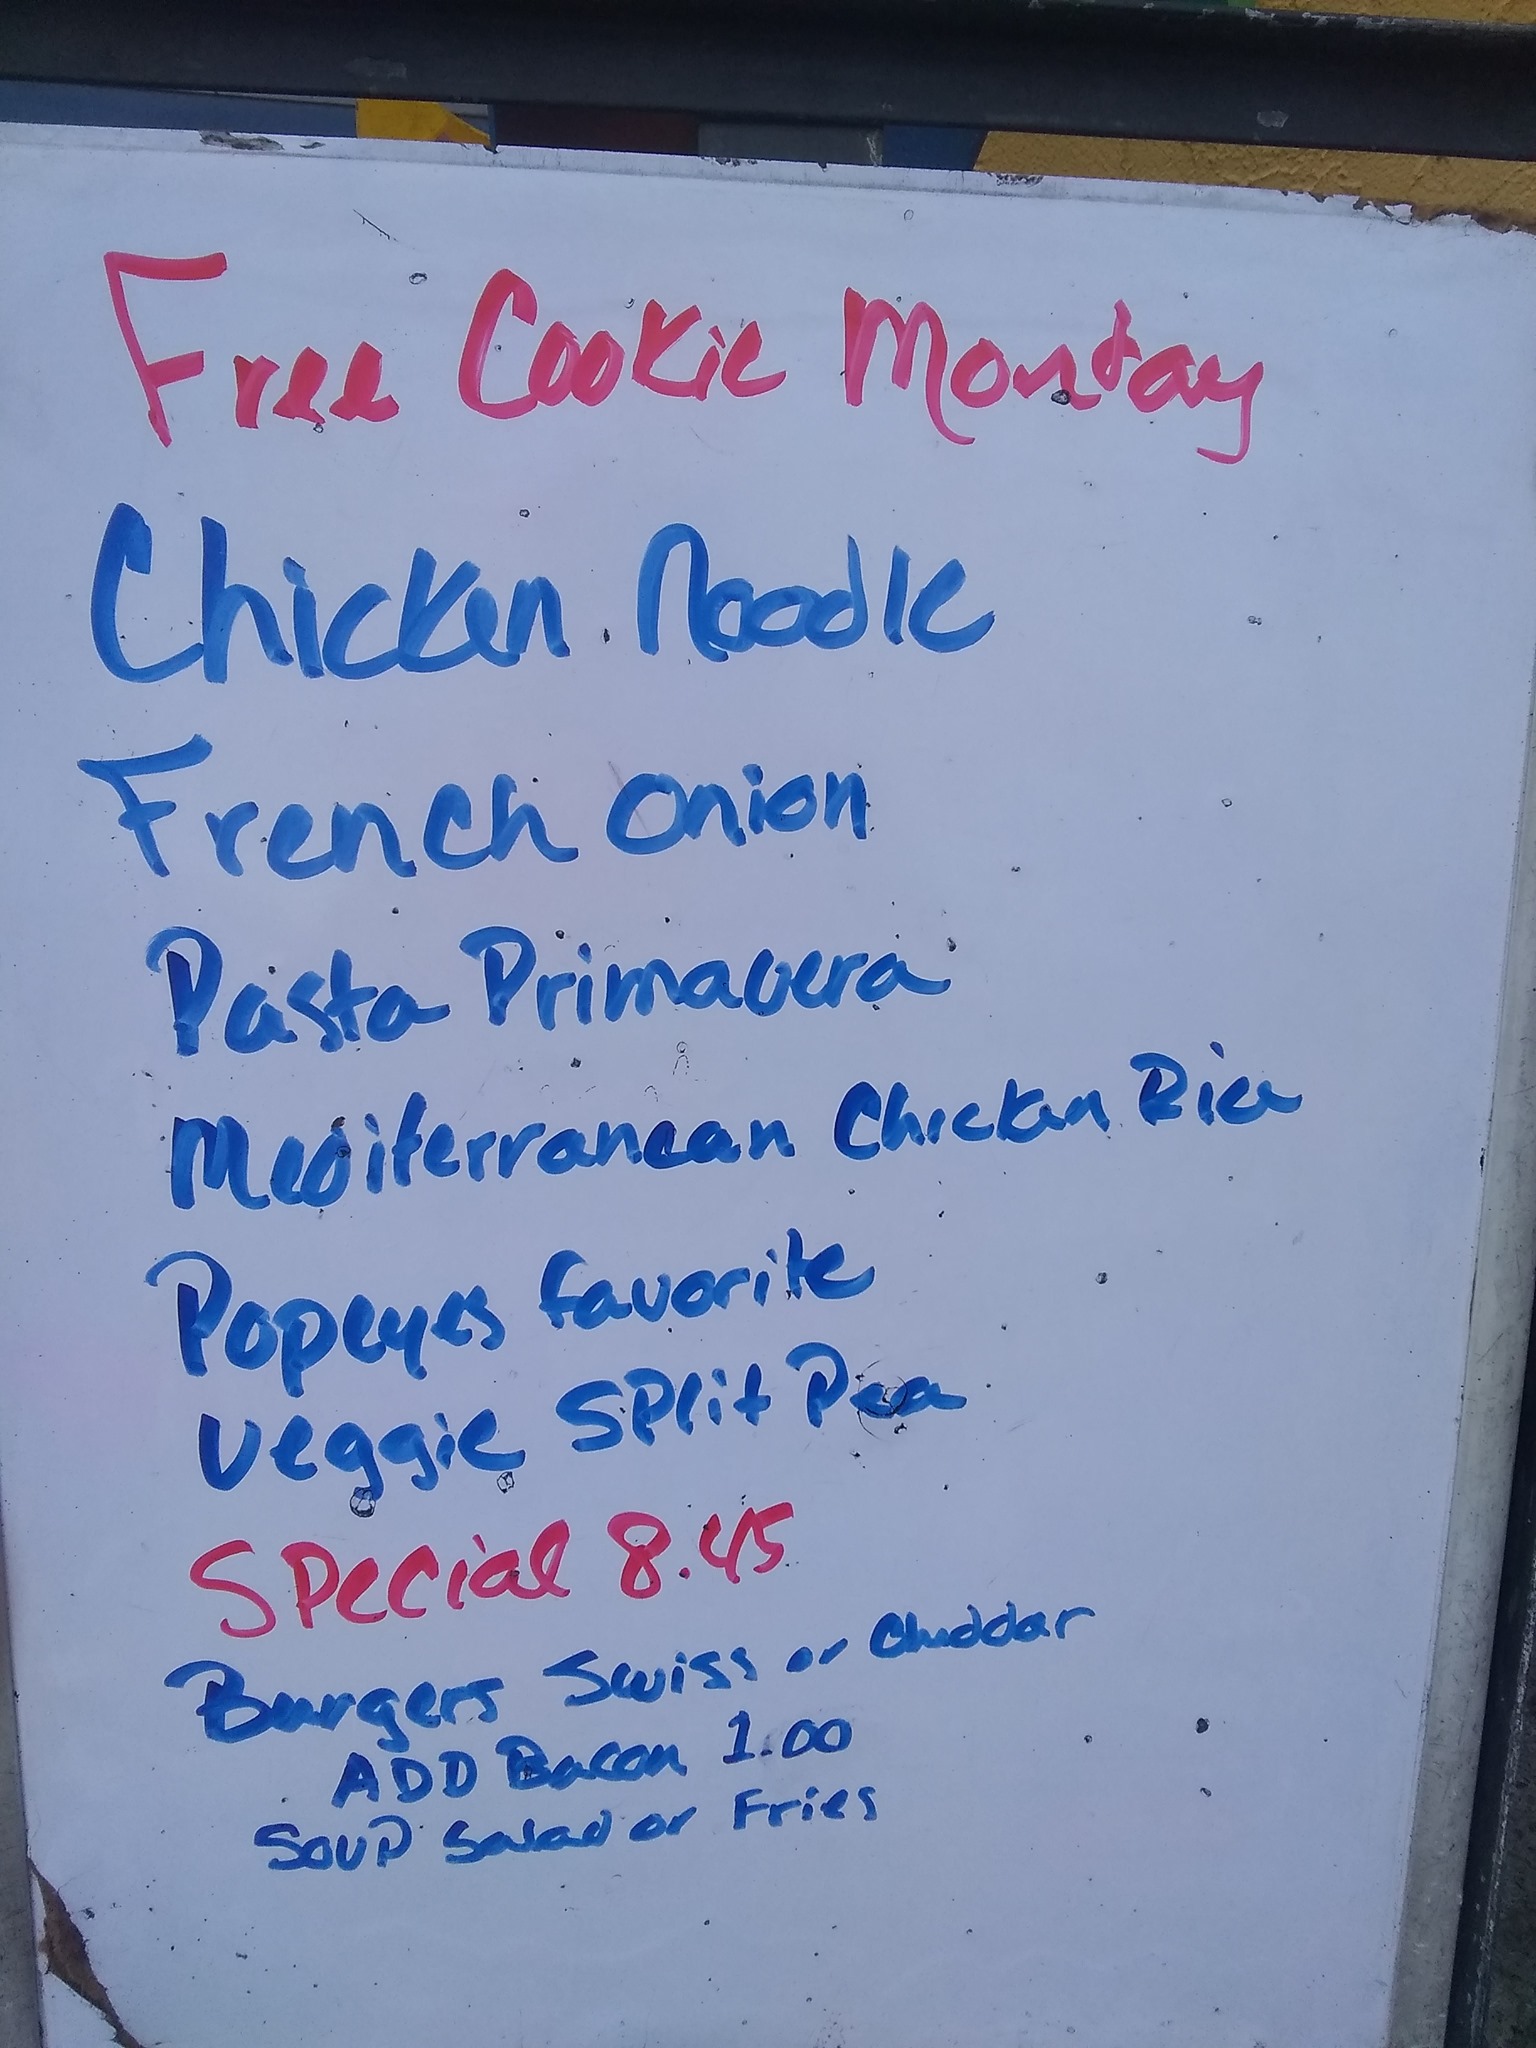 Free Cookie Monday
Chicken Noodle
French Onion
Pasta Primavera
Mediterranean Chicken Rice
Popeyes favorite
Veggie Split Pea
Special 8.45
Burgers Swiss or Cheddar
ADD Bacon 1.00
Soup Salad or Fries